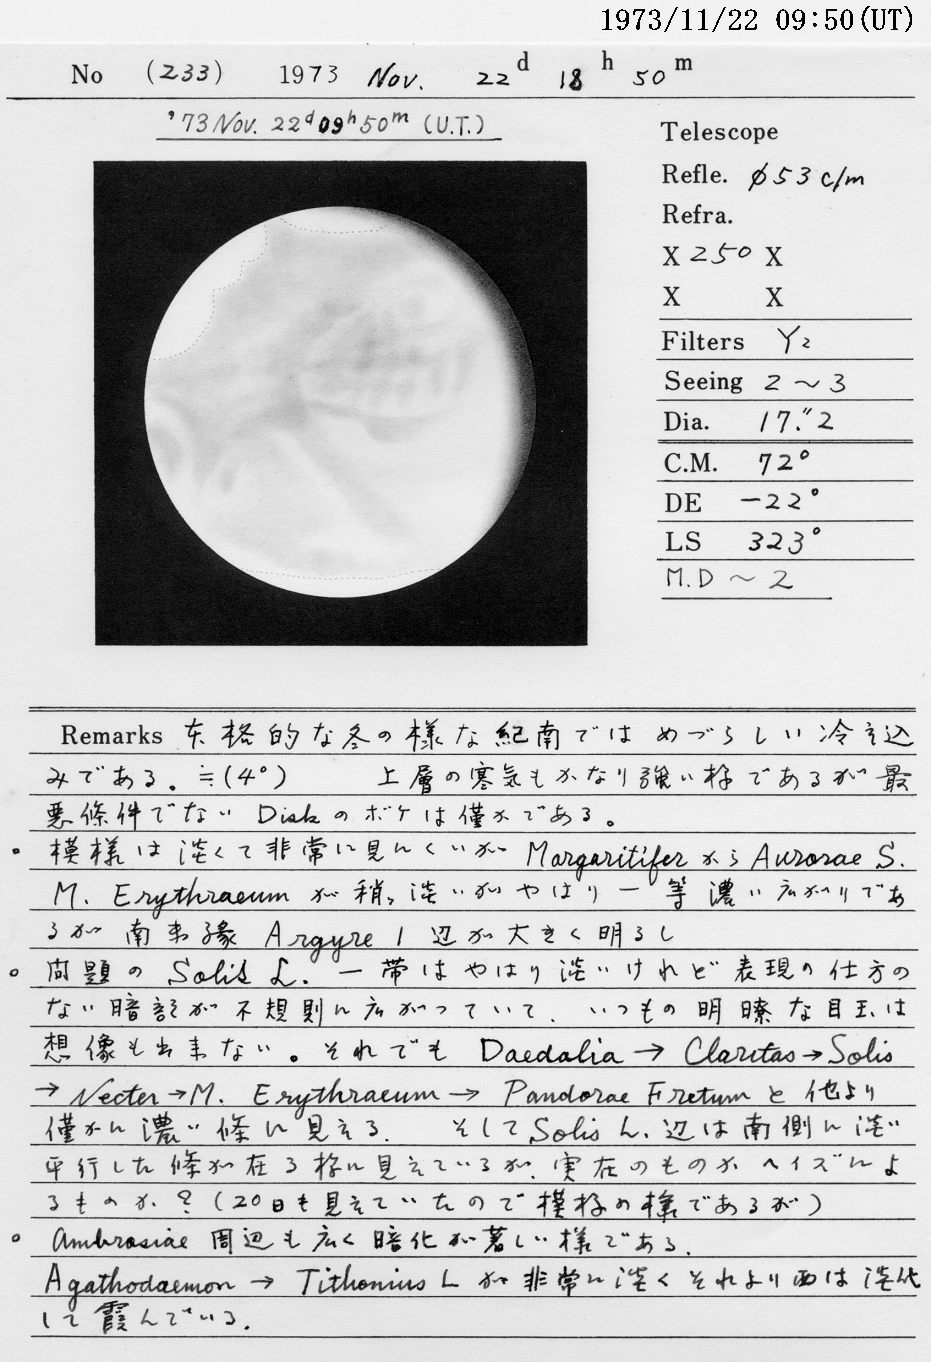 1973/11/22 09:50(UT)
No (233) 1973 Nov. 22d 18h 50m
'73 Nov. 22d 09h 50m (U.T.)
Telescope
Refle. φ53 c/m
Refra.
X 250 X
X X
Filters Y2
Seeing 2～3
Dia. 17."2
C.M. 72°
DE －22°
LS 323°
M.D ～ 2
Remarks 本格的な冬の様な紀南ではめづらしい冷え込
みである。≒(4°) 上層の寒気もかなり強い様であるが最
悪條件でない Diskのボケは僅かである。
・模様は淡くて非常に見にくいが Margaritifer から Aurorae S.
M. Erythraeum が稍々淡いがやはり一等濃い広がりであ
るが 南東縁 Argyre I 辺が大きく明るし
○問題の Solis L. 一帯はやはり淡いけれど表現の仕方の
ない暗部が不規則に広がっていて、いつもの明瞭な目玉は
想像も出来ない。それでも Daedalia → Claritas → Solis
→ Necter → M. Erythraeum → Pandorae Fretum と他より
僅かに濃い條に見える. そして Solis L. 辺は南側に淡い
平行した條が在る様に見えているが、実在のものかヘイズによ
るものか?(20日も見えていたので模様の様であるが)
○Ambrosiae 周辺も広く暗化が著しい様である.
Agathodaemon → Tithonius L が非常に淡くそれより西は淡化
して霞んでいる.